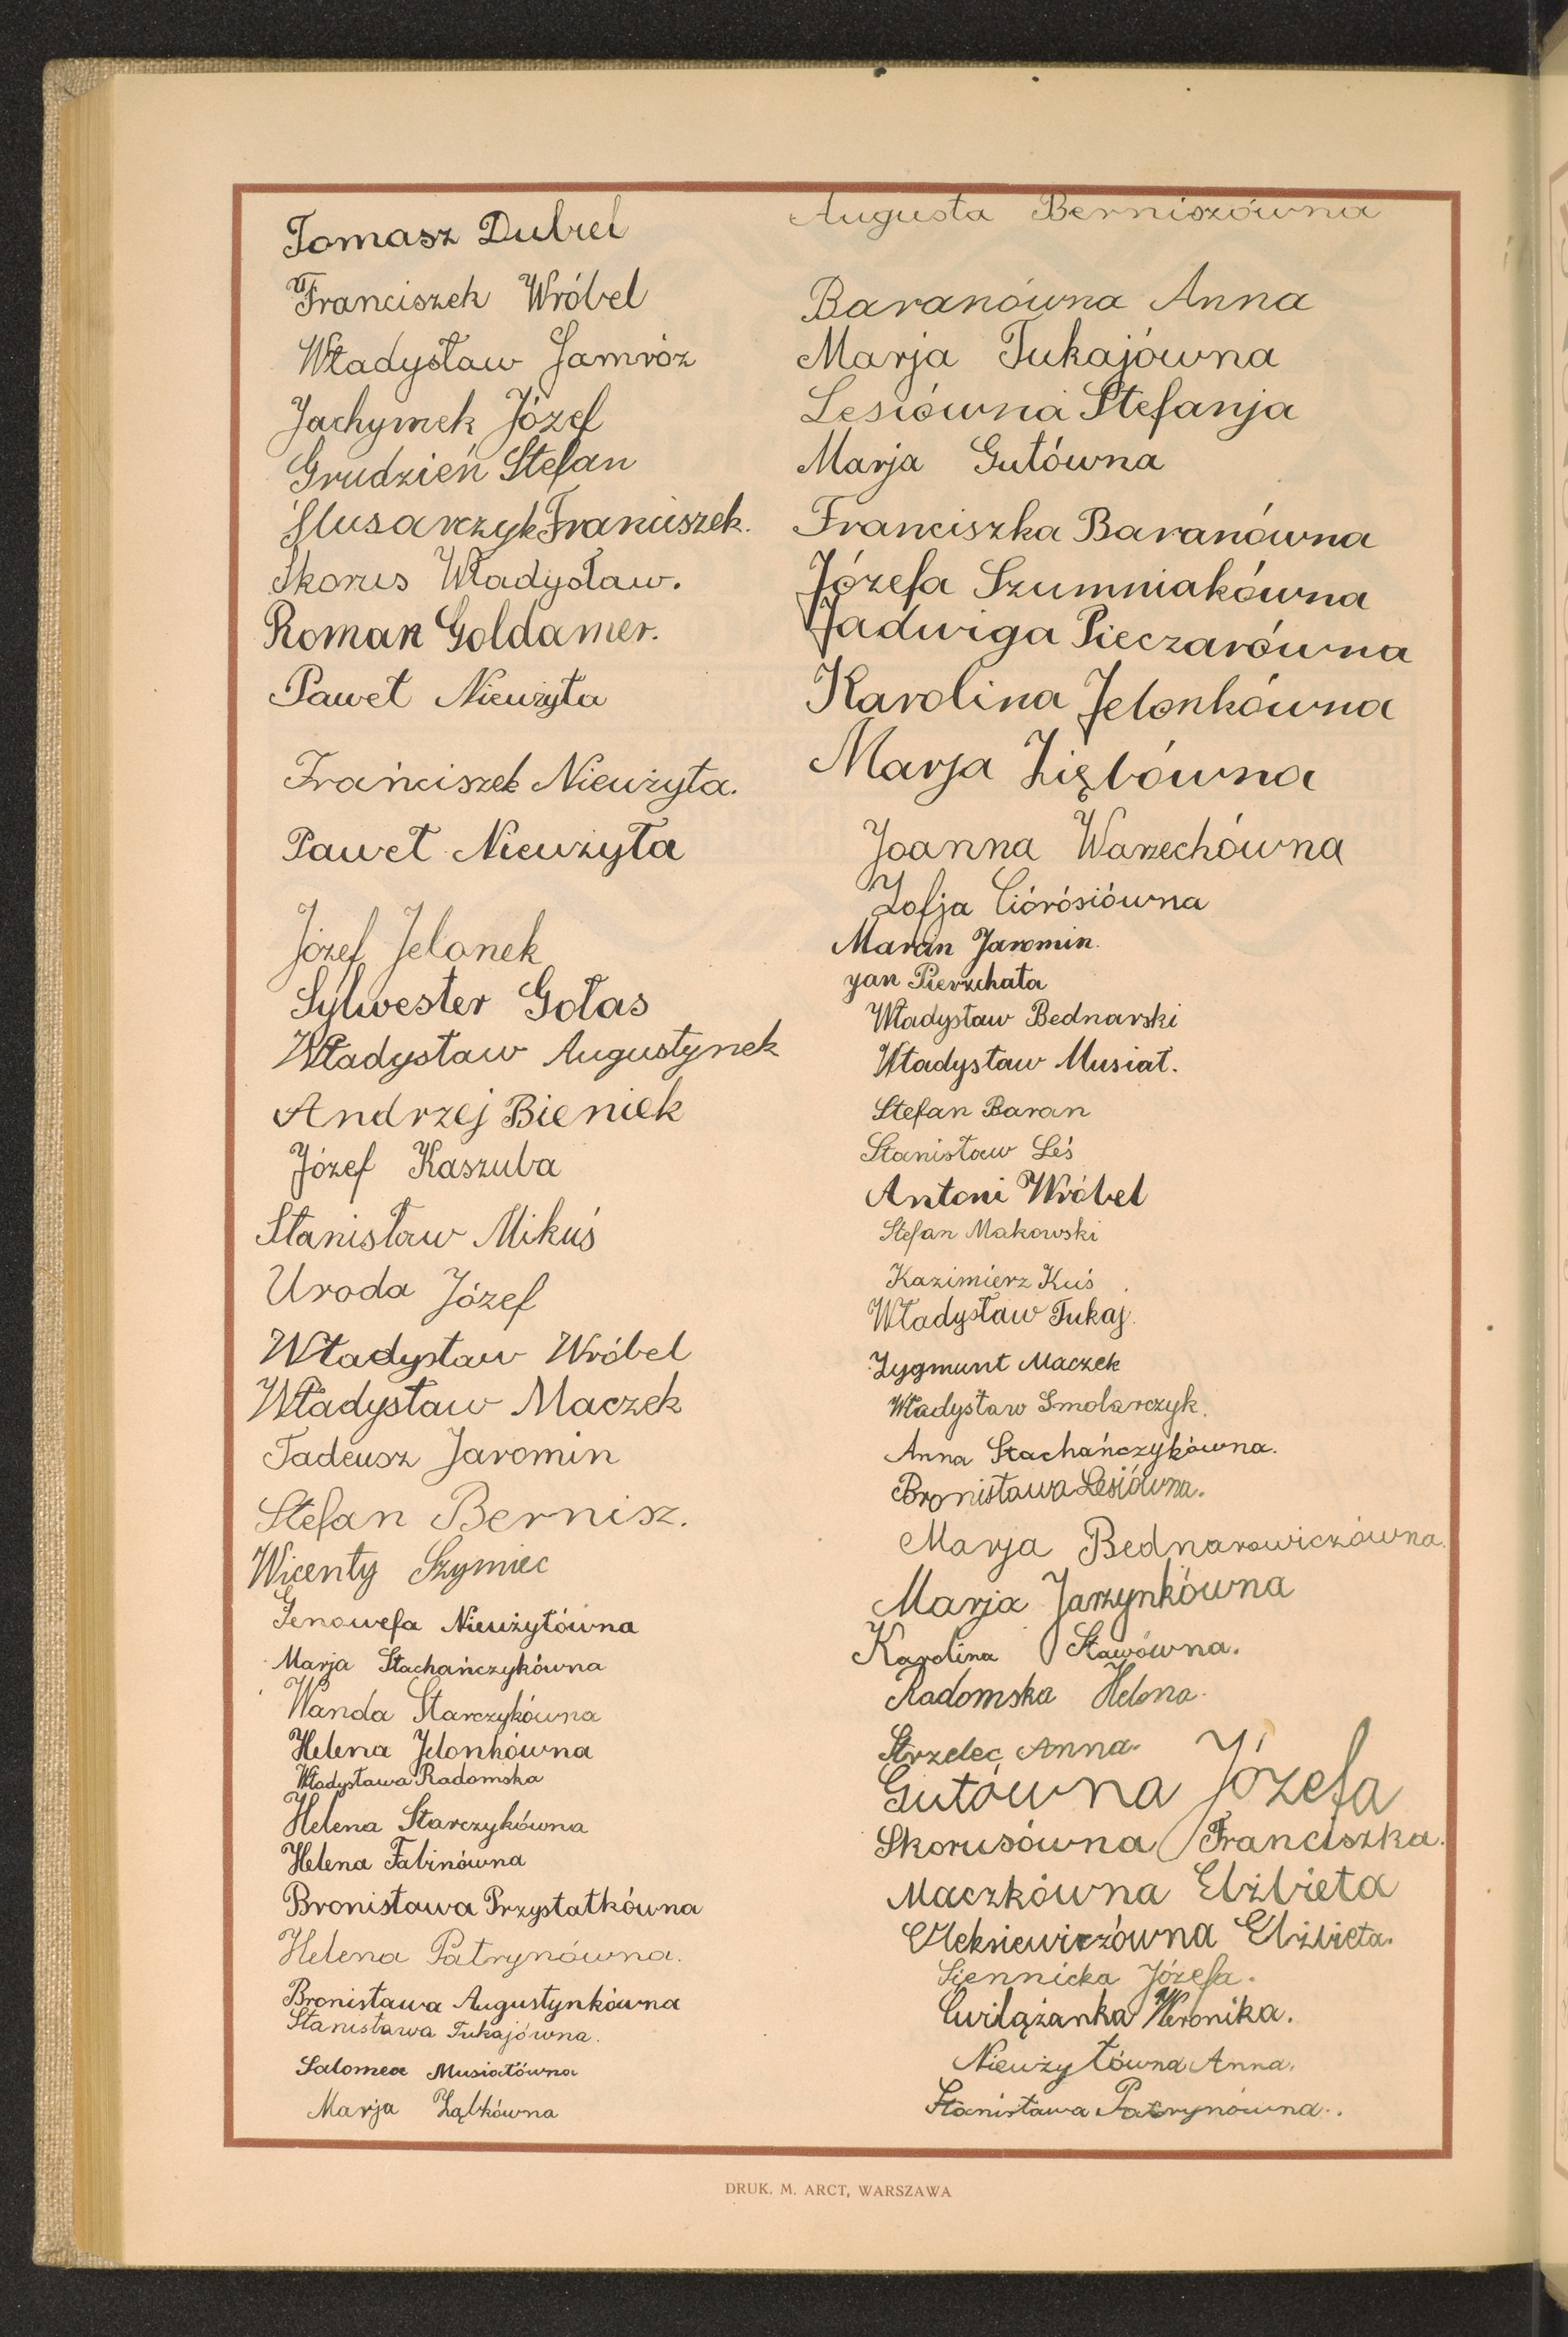 Tomasz Dubiel
Franciszek Wróbel
Władysław Jamróz
Jachymek Józef
Grudzień Stefan
Ślusarczyk Franciszek.
Skorus Władysław.
Roman Goldamer.
Paweł Nieużyła
Frańciszek Nieużyła.
Paweł Nieużyła
Józef Jelonek
Sylwester Gołas
Władysław Augustynek
Andrzej Bieniek
Józef Kaszuba
Stanisław Mikuś
Uroda Józef
Władysław Wróbel
Władysław Maczek
Tadeusz Jaromin
Stefan Bernisz.
Wicenty Szymiec
Genowefa Nieużytówna
Marja Stachańczykówna
Wanda Starczykówna
Helena Jelonkówna
Władysława Radomska
Helena Starczykówna
Helena Fabinówna
Bronisława Przystałkówna
Helena Patrynówna.
Bronisława Augustynkówna
Stanisława Tukajówna.
Salomea Musiałówna
Marja Ząbkówna
Augusta Berniszówna
Baranówna Anna
Marja Tukajówna
Lesiówna Stefanja
Marja Gutówna
Franciszka Baranówna
Józefa Szumniakówna
Jadwiga Pieczarówna
Karolina Jelonkówna
Marja Ziębówna
Joanna Warzechówna
Zofja Ciórósiówna
Maran Jaromin.
Jan Pierzchała
Władysław Bednarski
Władysław Musiał.
Stefan Baran
Stanisław Leś
Antoni Wróbel
Stefan Makowski
Kazimierz Kuś
Władysław Tukaj.
Zygmunt Maczek
Władysław Smolarczyk.
Anna Stachańczykówna.
Bronisława Lesiówna.
Marja Bednarowiczówna.
Marja Jarzynkówna
Karolina Sławówna.
Radomska Helena.
Strzelec Anna.
Gutówna Józefa
Skorusówna Franciszka.
Maczkówna Elżbieta
Oleksiewiczówna Elżbieta.
Siennicka Józefa.
Ćwilążanka Weronika.
Nieużytówna Anna.
Stanisława Patrynówna.
DRUK. M. ARCT, WARSZAWA